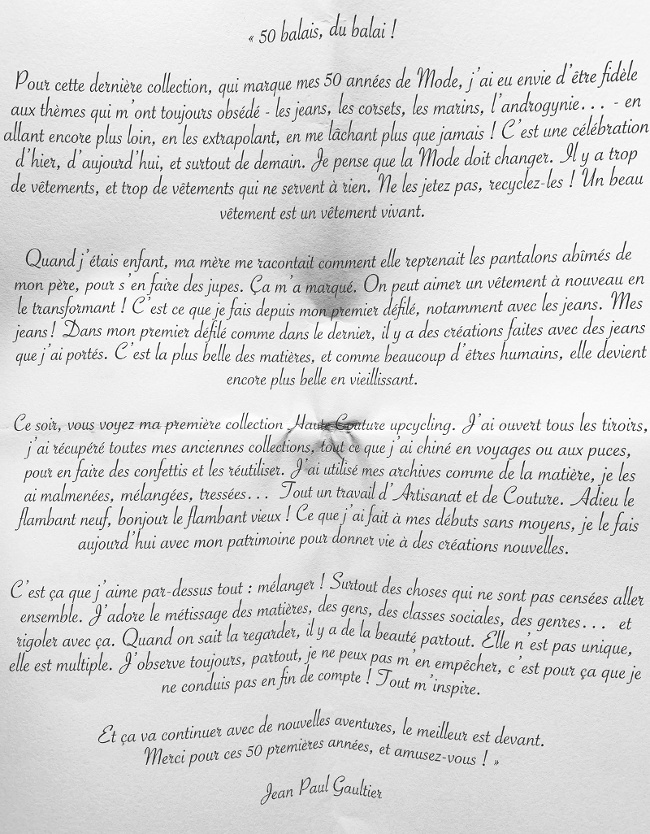 « 50 balais, du balai !
Pour cette dernière collection, qui marque mes 50 années de Mode, j'ai eu envie d'être fidèle
aux thèmes qui m'ont toujours obsédé - les jeans, les corsets, les marins, l'androgynie... - en
allant encore plus loin, en les extrapolant, en me lâchant plus que jamais ! C'est une célébration
d'hier, d'aujourd'hui, et surtout de demain. Je pense que la Mode doit changer. Il y a trop
de vêtements, et trop de vêtements qui ne servent à rien. Ne les jetez pas, recyclez-les ! Un beau
vêtement est un vêtement vivant.
Quand j'étais enfant, ma mère me racontait comment elle reprenait les pantalons abîmés de
mon père, pour s'en faire des jupes. Ça m'a marqué. On peut aimer un vêtement à nouveau en
le transformant ! C'est ce que je fais depuis mon premier défilé, notamment avec les jeans. Mes
jeans ! Dans mon premier défilé comme dans le dernier, il y a des créations faites avec des jeans
que j'ai portés. C'est la plus belle des matières, et comme beaucoup d'êtres humains, elle devient
encore plus belle en vieillissant.
Ce soir, vous voyez ma première collection Haute Couture upcycling. J'ai ouvert tous les tiroirs,
j'ai récupéré toutes mes anciennes collections, tout ce que j'ai chiné en voyages ou aux puces,
pour en faire des confettis et les réutiliser. J'ai utilisé mes archives comme de la matière, je les
ai malmenées, mélangées, tressées... Tout un travail d'Artisanat et de Couture. Adieu le
flambant neuf, bonjour le flambant vieux ! Ce que j'ai fait à mes débuts sans moyens, je le fais
aujourd'hui avec mon patrimoine pour donner vie à des créations nouvelles.
C'est ça que j'aime par-dessus tout : mélanger ! Surtout des choses qui ne sont pas censées aller
ensemble. J'adore le métissage des matières, des gens, des classes sociales, des genres... et
rigoler avec ça. Quand on sait la regarder, il y a de la beauté partout. Elle n'est pas unique,
elle est multiple. J'observe toujours, partout, je ne peux pas m'en empêcher, c'est pour ça que je
ne conduis pas en fin de compte ! Tout m'inspire.
Et ça va continuer avec de nouvelles aventures, le meilleur est devant.
Merci pour ces 50 premières années, et amusez-vous ! »
Jean Paul Gaultier